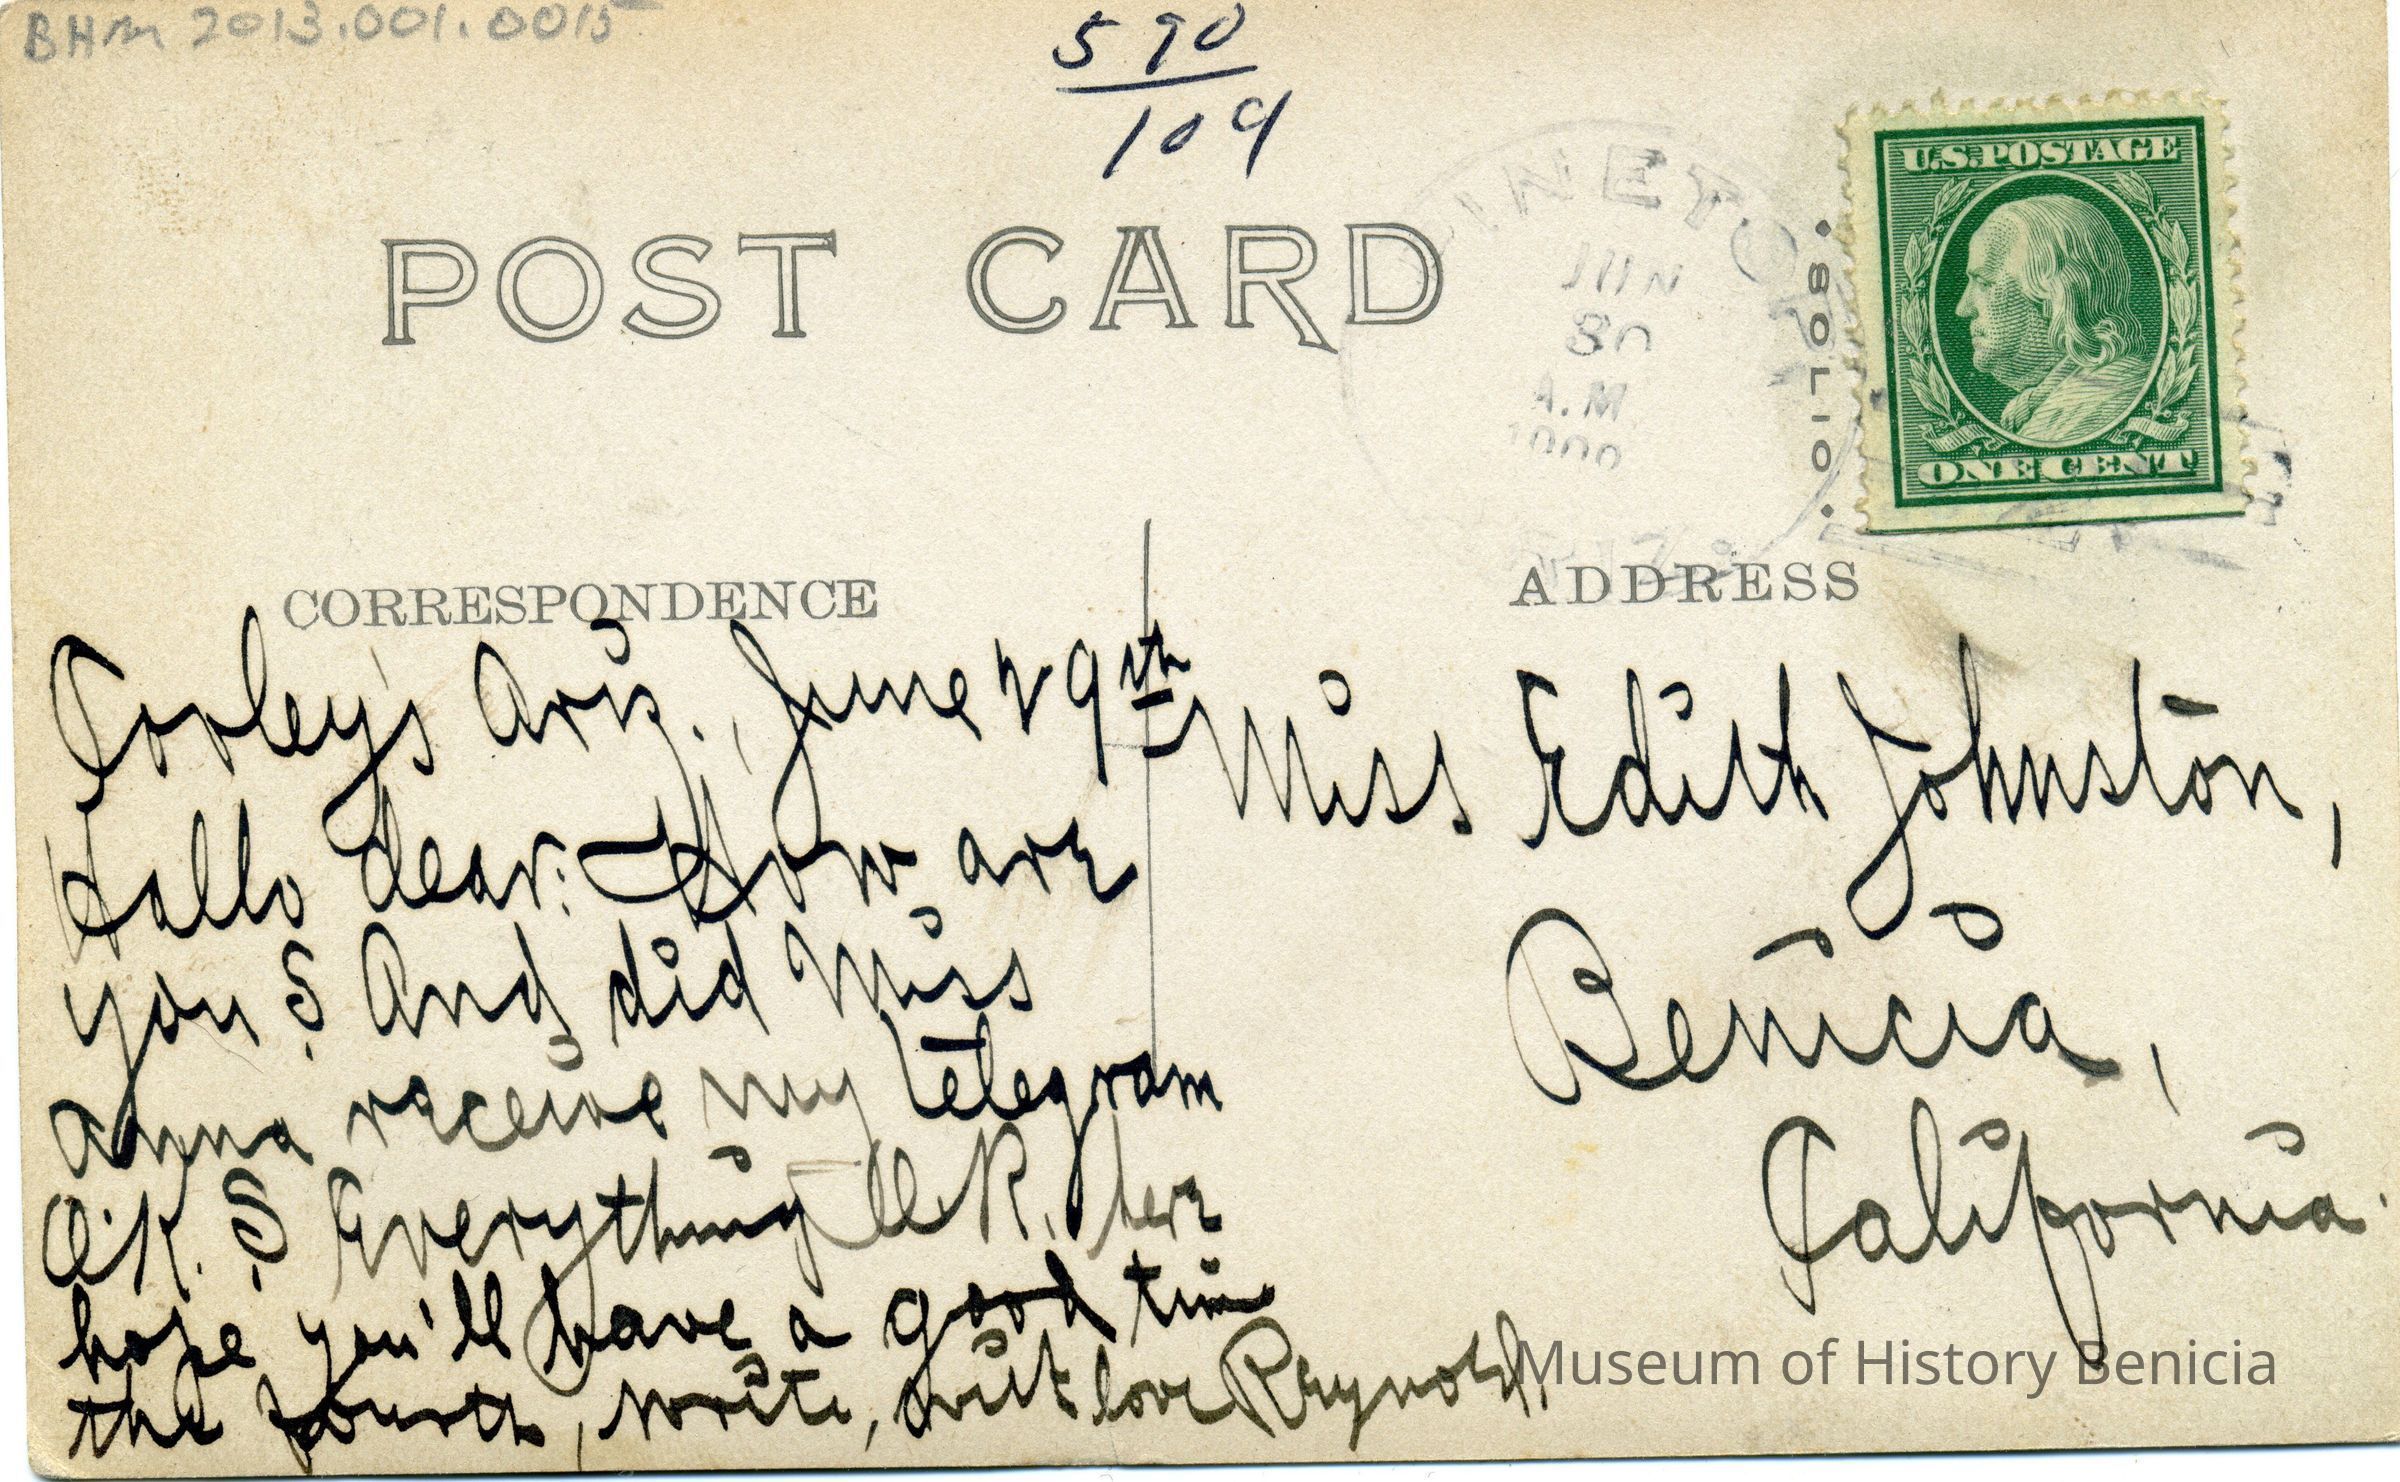 BHM 2013.001.0015
590
109
POST CARD
PINETOP
JUN
30
A.M.
ARIZ.
U.S. POSTAGE
ONE CENT
SOLIO
CORRESPONDENCE
ADDRESS
Cooley's Ariz., June 29th
Hallo dear: How are
you? And did Miss
Anna receive my telegram
O.K.? Everything O.K. here
hope you'll have a good time
the fourth, write, with love Reynolds.
Miss Edith Johnston,
Benicia,
California.
Museum of History Benicia